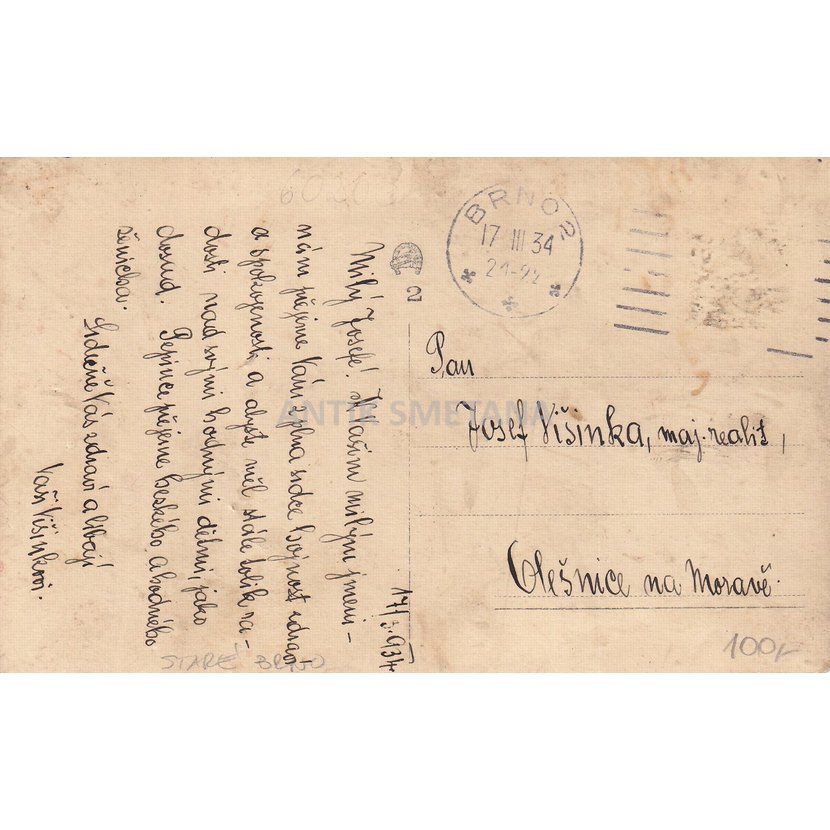 17/3. 934.
Milý Josefé! K Vašim milým jmeni-
nám přejeme Vám z plna srdce hojnost zdraví
a spokojenosti a abyste měl stále tolik ra-
dosti nad svými hodnými dětmi, jako
dosud. Pepince přejeme hezkého a hodného
ženicha.
Srdečně Vás zdraví a líbají
Vaši Višinkovi.
STARÉ BRNO
2
BRNO 2
17 III 34
21-22
Pan
Josef Višinka, maj. realit,
Olešnice na Moravě.
100,-
ANTIK SMETANA